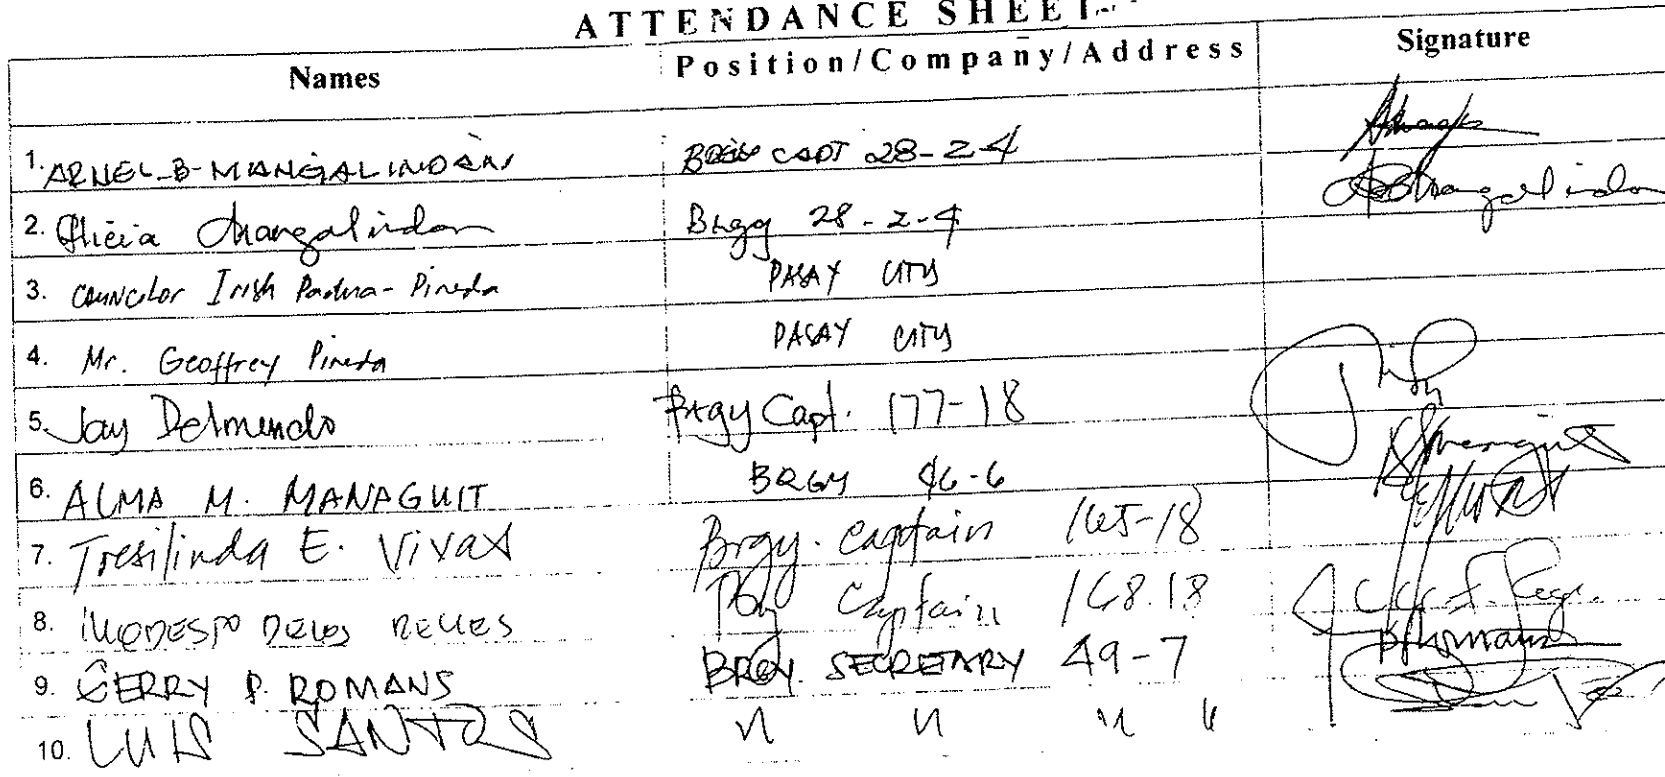 ATTENDANCE SHEET
Names Position/Company/Address Signature
1. ARNEL B. MANGALINDAN BRGY CAPT 28-Z-4
2. Alicia Mangalindan Brgy 28-Z-4
3. Councilor Irish Padua-Pineda PASAY CITY
4. Mr. Geoffrey Pineda PASAY CITY
5. Jay Delmendo Brgy Capt. 177-18
6. ALMA M. MANAGUIT BRGY 46-6
7. Tresilinda E. Vivas Brgy. Captain 165-18
8. MODESTO DELOS REYES Captain 168.18
9. GERRY P. ROMANS BRGY. SECRETARY 49-7
10. LUIS SANTOS " " " "